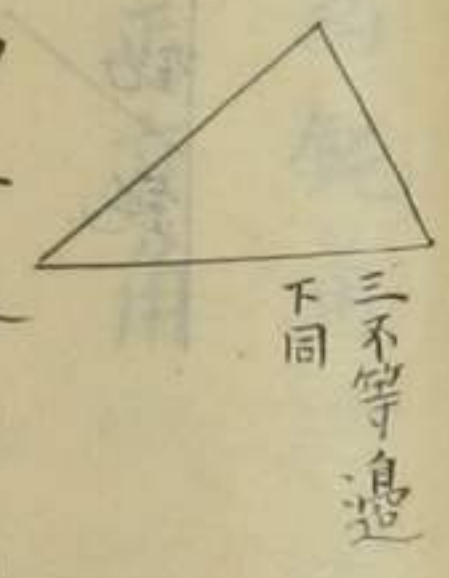 三不等邉
下同